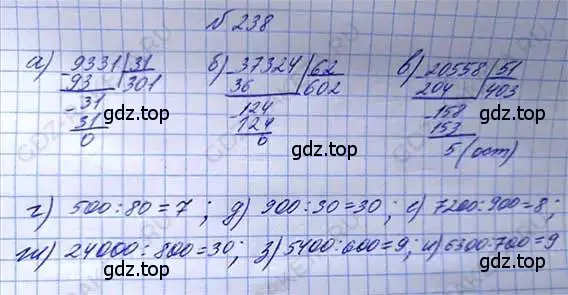 № 238
а) 9331 | 31   б) 37324 | 62   в) 20558 | 51
93   301   36   602   204   403
31   124   158
31   124   153
0   0   5 (ост)
gdz.top gdz.top gdz.top
г) 500:80=7 ; д) 900:30=30 ; е) 7200:900=8 ;
ж) 24000:800=30 ; з) 5400:600=9 ; и) 6300:700=9
gdz.top gdz.top